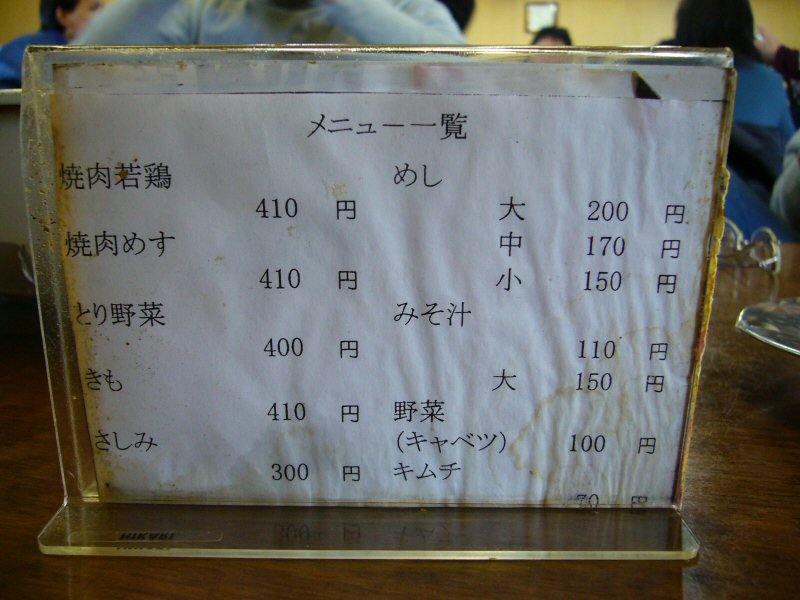 メニュー一覧
焼肉若鶏
410 円
焼肉めす
410 円
とり野菜
400 円
きも
410 円
さしみ
300 円
めし
大 200 円
中 170 円
小 150 円
みそ汁
110 円
大 150 円
野菜
(キャベツ) 100 円
キムチ
70 円
HIKARI